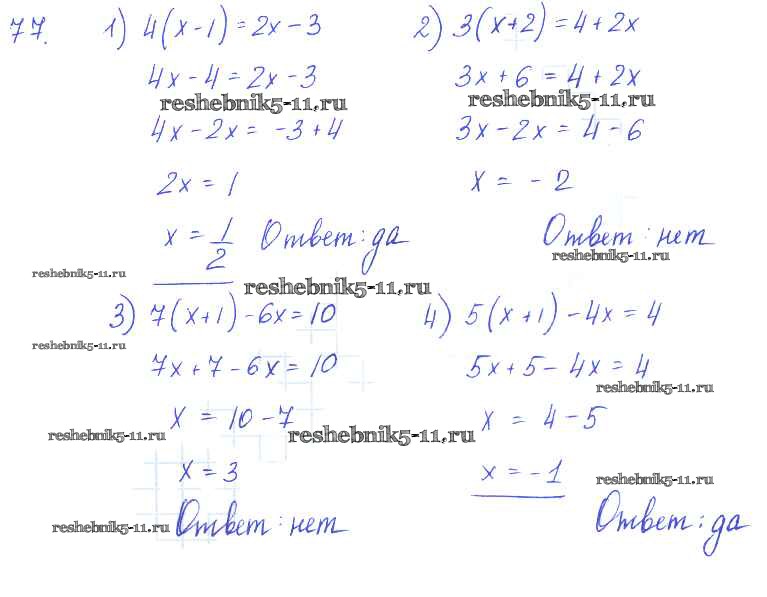 77. 1) 4(x-1)=2x-3
4x-4=2x-3
reshebnik5-11.ru
4x-2x= -3+4
2x=1
x=1/2 Ответ: да
reshebnik5-11.ru
2) 3(x+2)=4+2x
3x+6=4+2x
reshebnik5-11.ru
3x-2x=4-6
x= -2
Ответ: нет
reshebnik5-11.ru
reshebnik5-11.ru
3) 7(x+1)-6x=10
reshebnik5-11.ru
7x+7-6x=10
x=10-7
reshebnik5-11.ru
reshebnik5-11.ru
x=3
reshebnik5-11.ru Ответ: нет
4) 5(x+1)-4x=4
5x+5-4x=4
reshebnik5-11.ru
x = 4-5
x=-1
reshebnik5-11.ru
Ответ: да